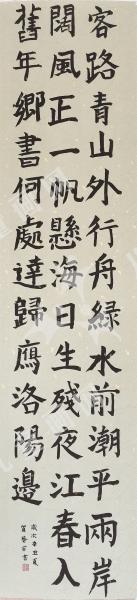 客路青山外行舟綠水前潮平兩岸
闊風正一帆懸海日生殘夜江春入
舊年鄉書何處達歸鴈洛陽邊
歲次辛丑夏